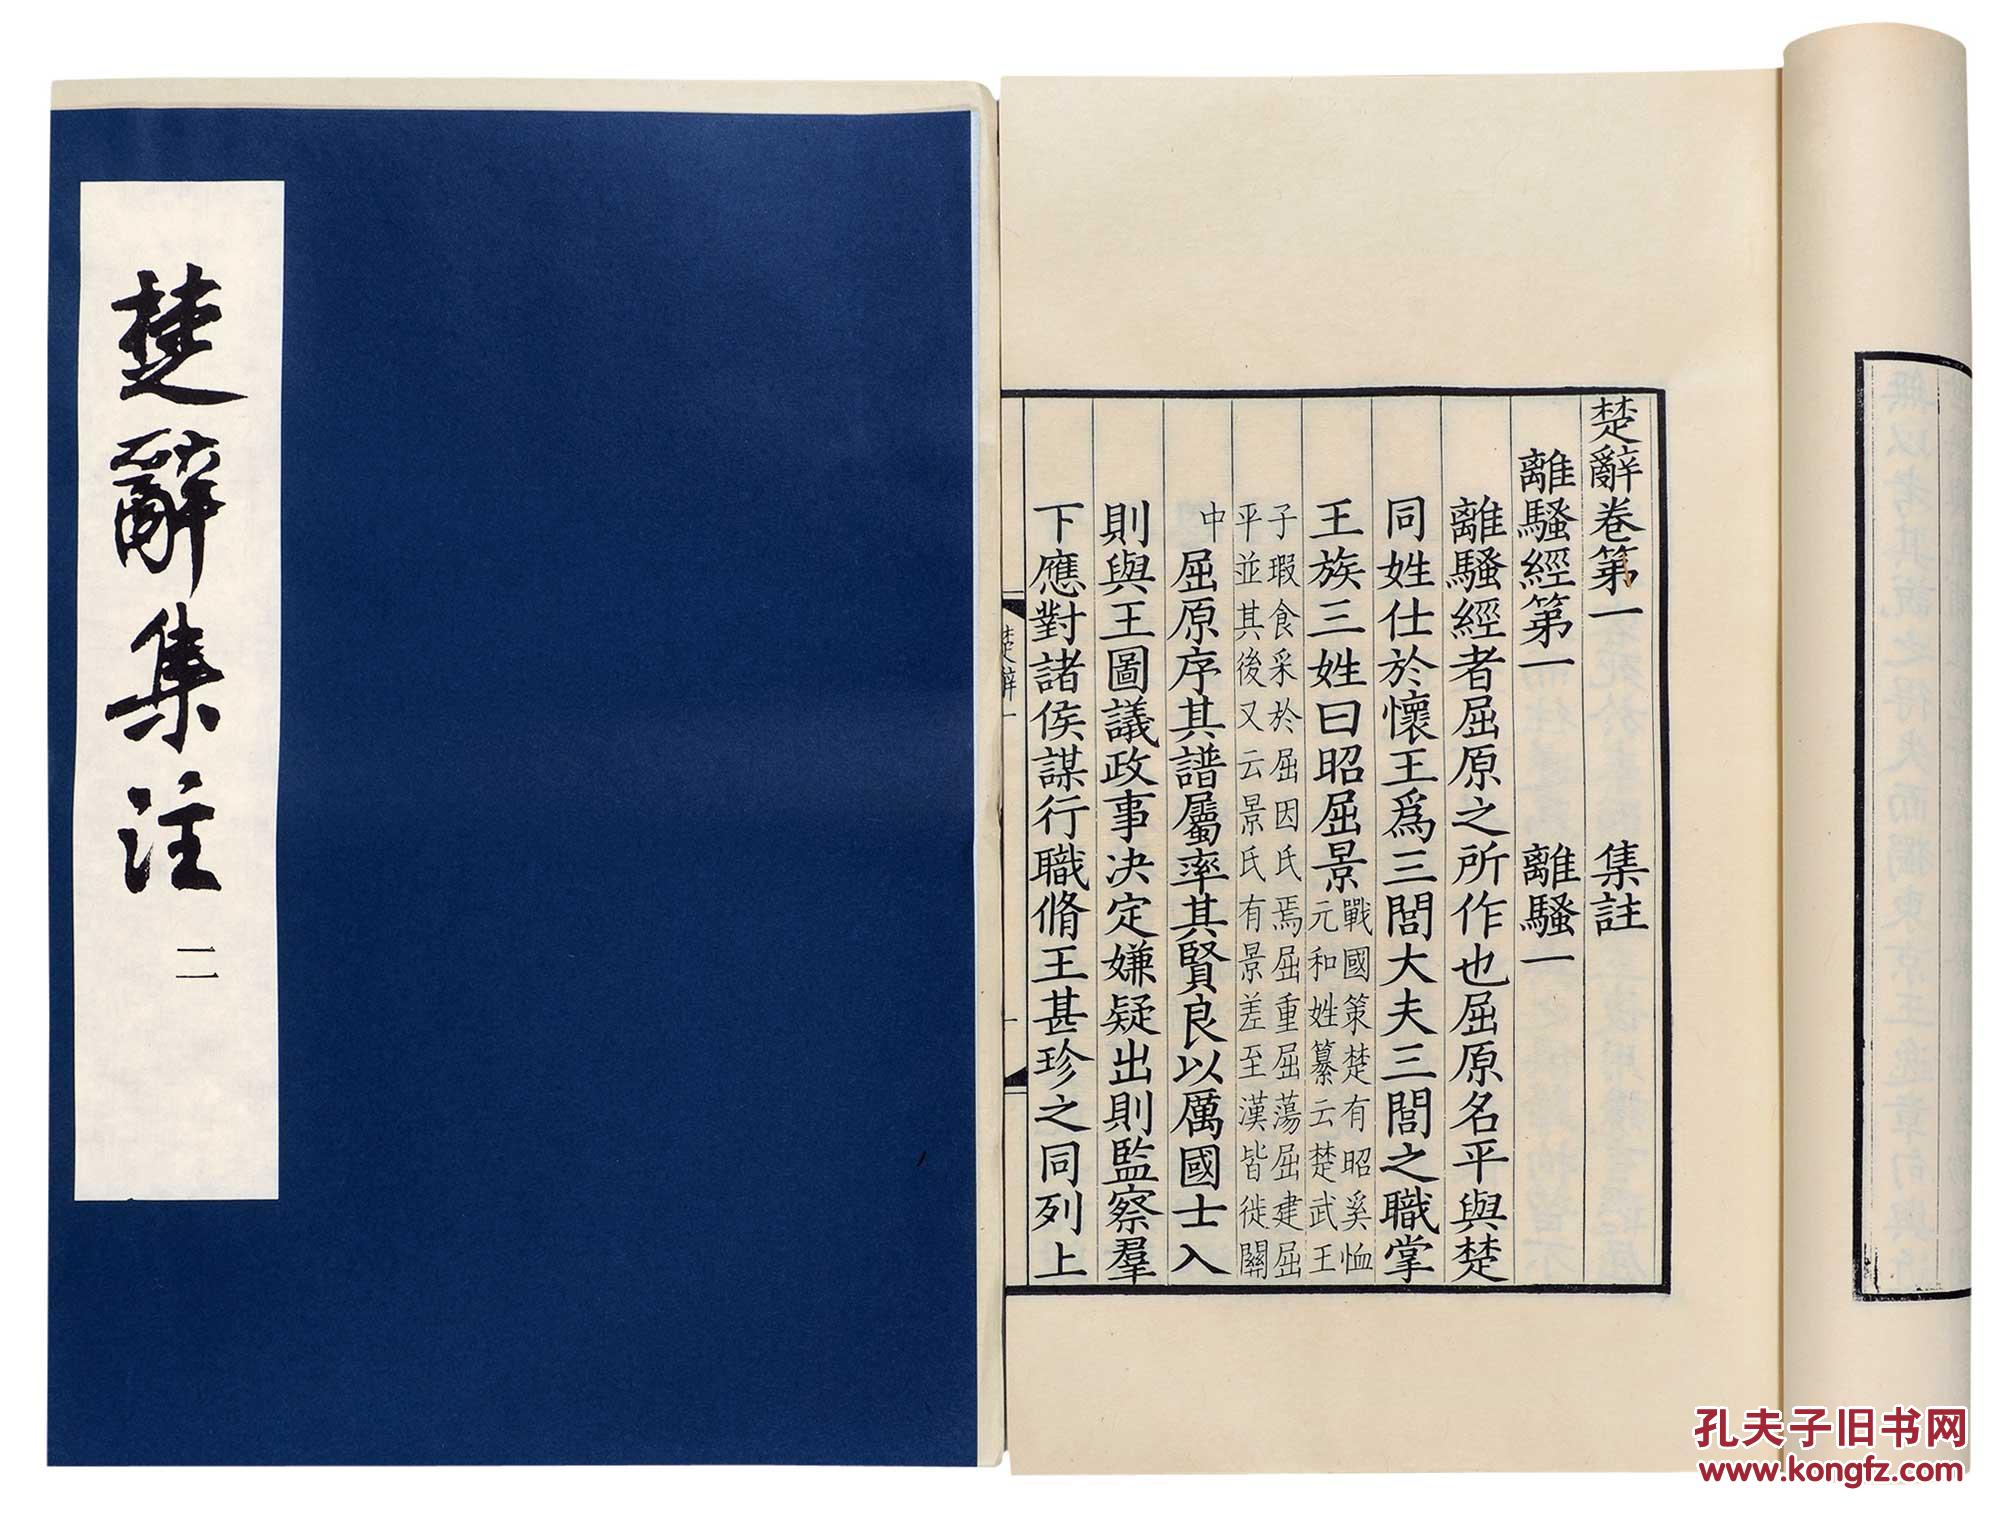 楚辭集注
二
楚辭卷第一　集註
離騷經第一　離騷一
離騷經者屈原之所作也屈原名平與楚
同姓仕於懷王爲三閭大夫三閭之職掌
王族三姓曰昭屈景
戰國策楚有昭奚恤
元和姓纂云楚武王
子瑕食采於屈因氏焉屈重屈蕩屈建屈
平並其後又云景氏有景差至漢皆徙關
中
屈原序其譜屬率其賢良以厲國士入
則與王圖議政事决定嫌疑出則監察羣
下應對諸侯謀行職脩王甚珍之同列上
楚辭一
一
無以考其說之得失而獨東京王逸章句與近
孔夫子旧书网
www.kongfz.com